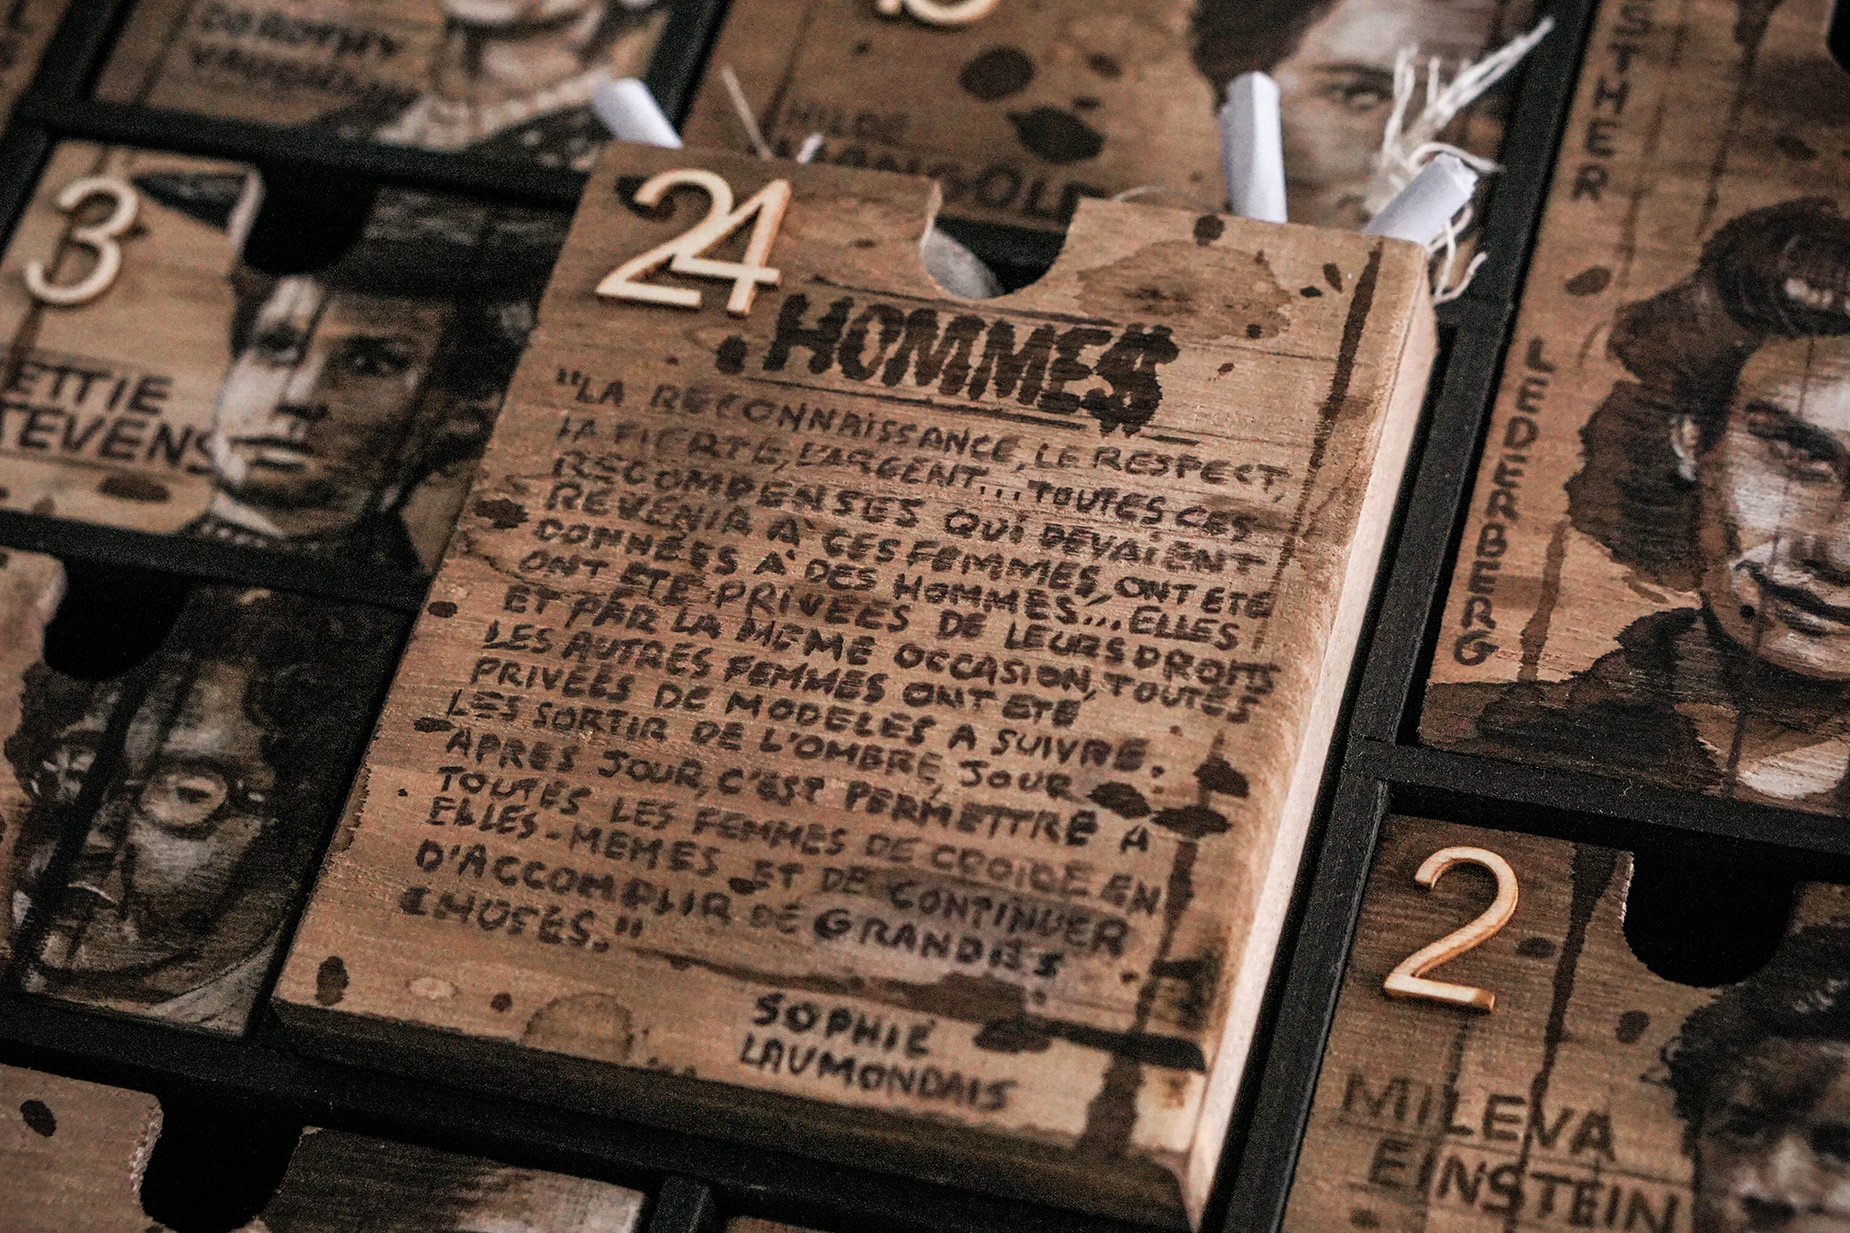 DOROTHY
VAUGHAN
HILDE
MANGOLD
ESTHER
LEDERBERG
3
ETTIE
TEVENS
24
HOMMES
"LA RECONNAISSANCE, LE RESPECT,
LA FIERTÉ, L'ARGENT... TOUTES CES
RECOMPENSES QUI DEVAIENT
REVENIR A CES FEMMES, ONT ETE
DONNÉES À DES HOMMES... ELLES
ONT ETE PRIVÉES DE LEURS DROITS
ET PAR LA MEME OCCASION, TOUTES
LES AUTRES FEMMES ONT ETE
PRIVÉES DE MODELES A SUIVRE.
LES SORTIR DE L'OMBRE, JOUR
APRES JOUR, C'EST PERMETTRE A
TOUTES LES FEMMES DE CROIRE EN
ELLES-MEMES ET DE CONTINUER
D'ACCOMPLIR DE GRANDES
CHOSES."
SOPHIE
LAUMONDAIS
2
MILEVA
EINSTEIN